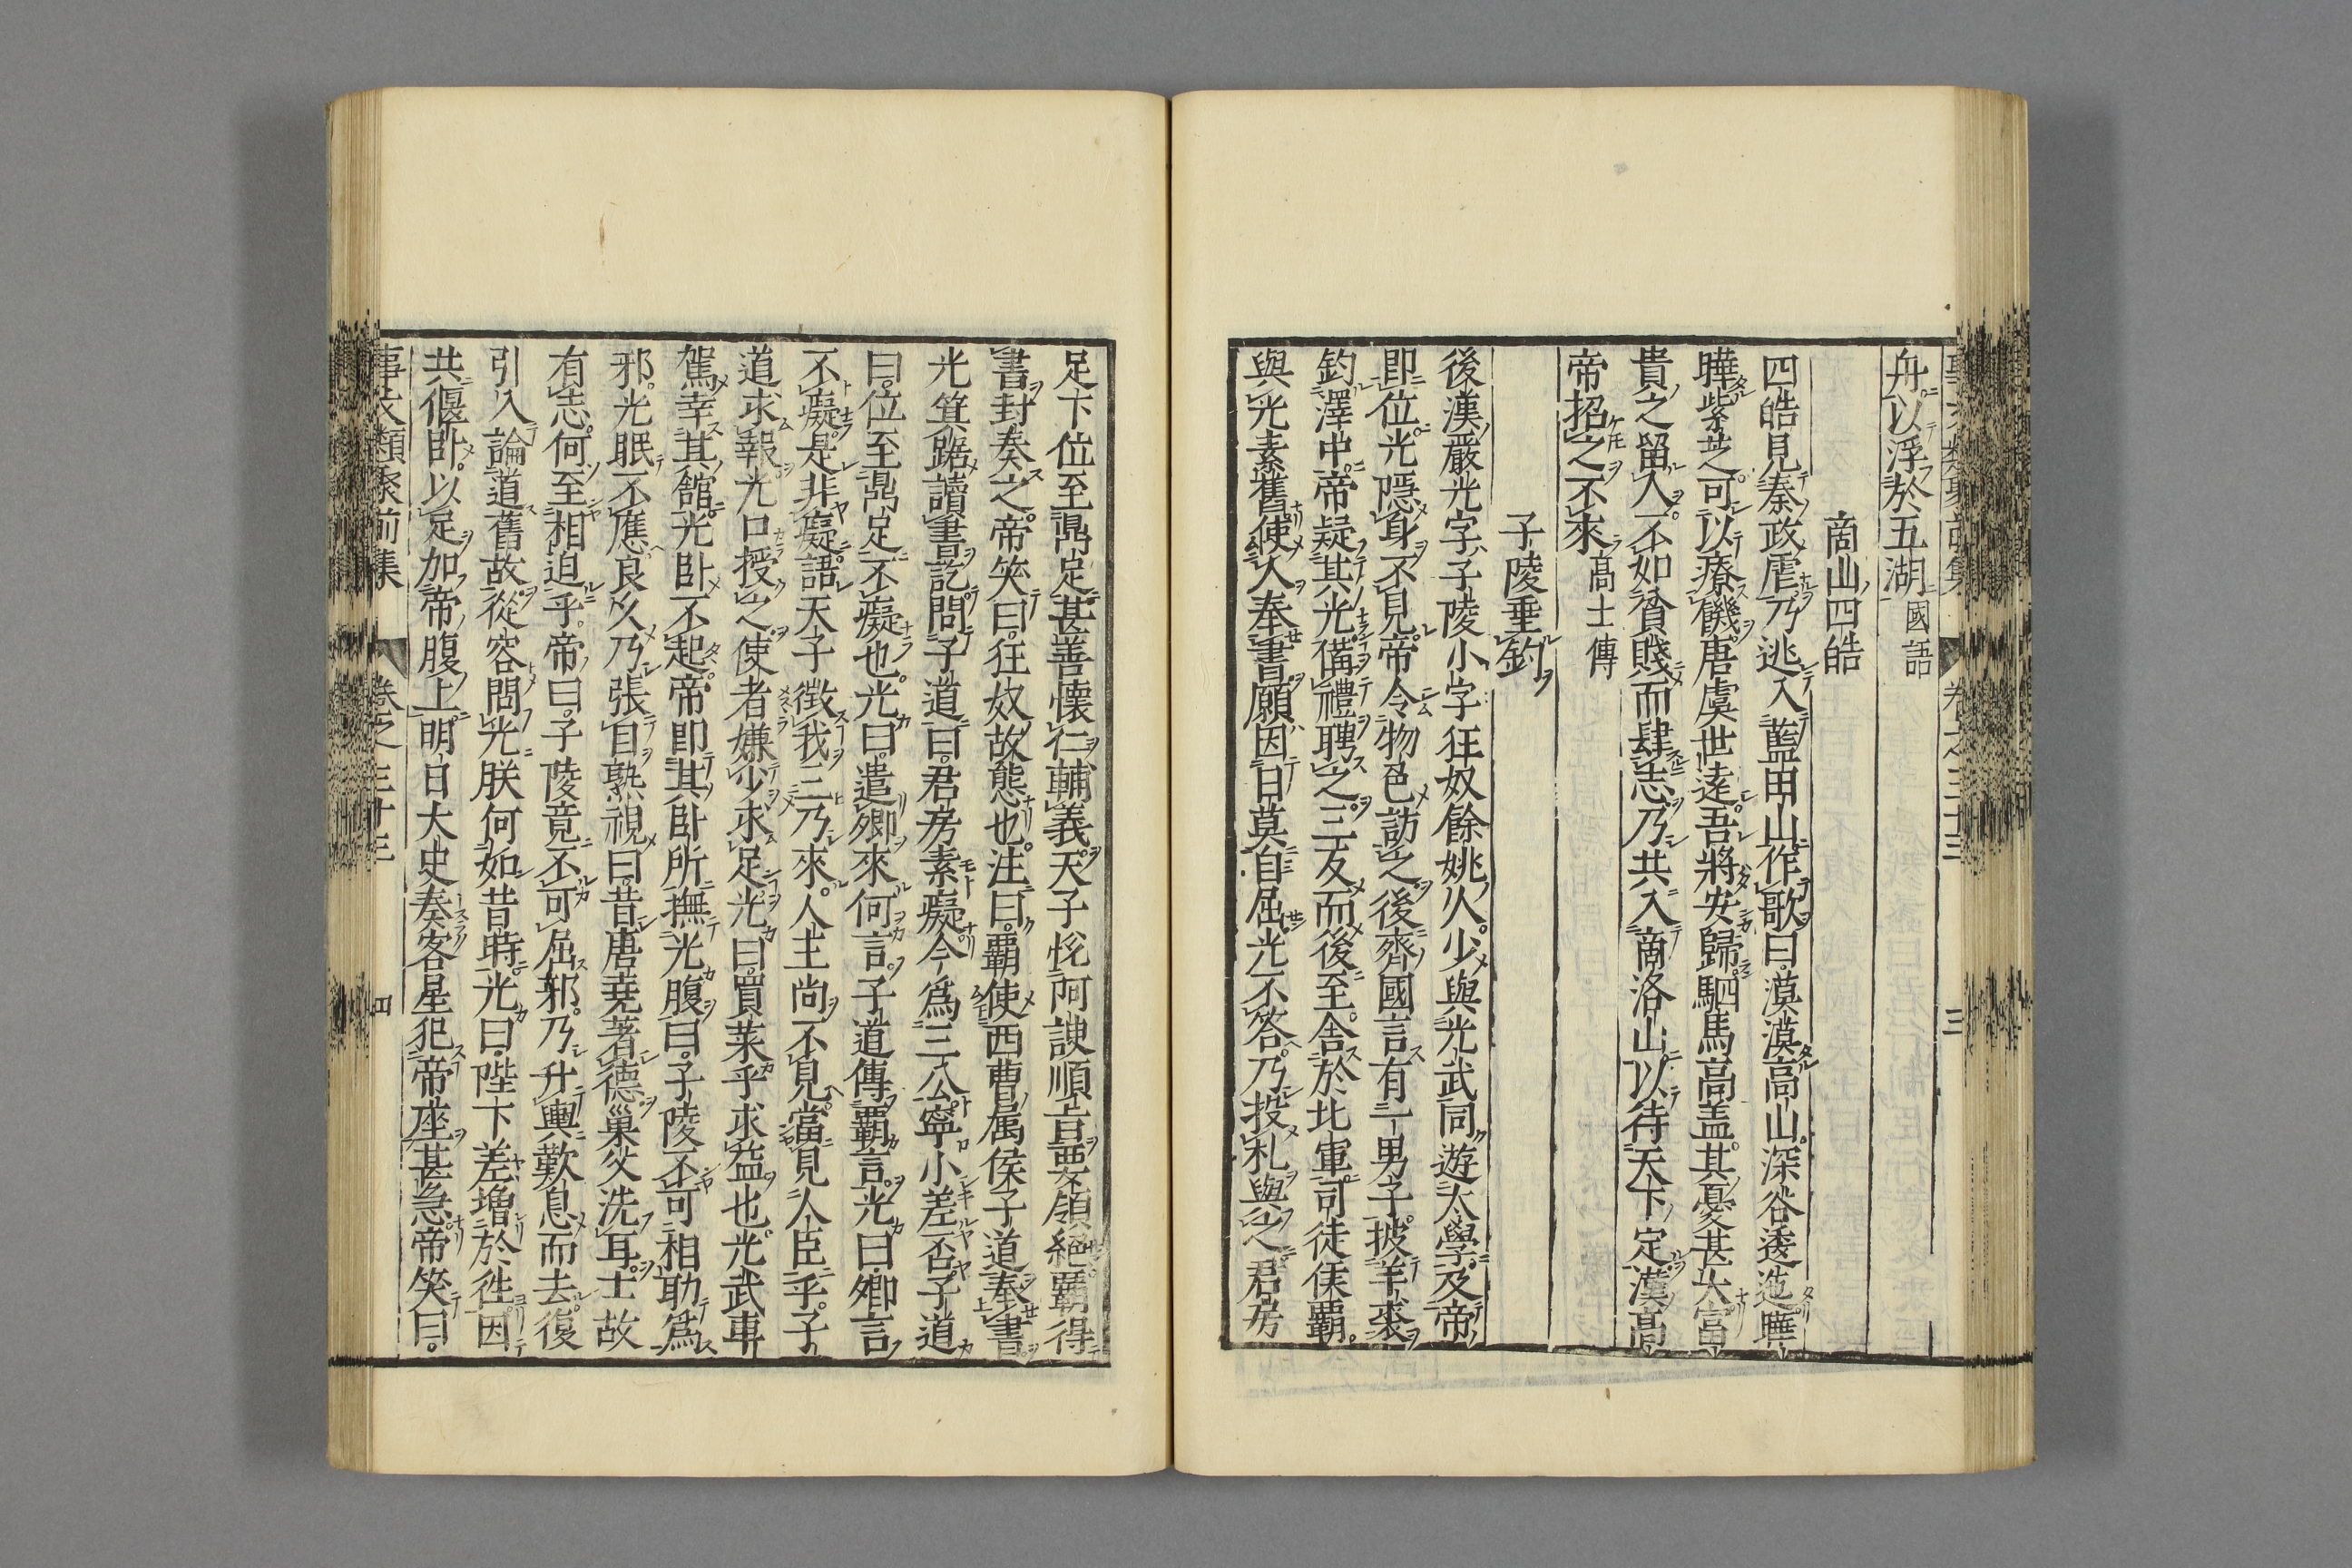 舟以浮於五湖 國語
商山四皓
四皓見秦政虐乃逃入藍田山作歌曰漠漠高山深谷逶迤曄
曄紫芝可以療饑唐虞世遠吾將安歸駟馬高盖其憂甚大富
貴之留人不如貧賤而肆志乃共入商洛山以待天下定漢高
帝招之不來 高士傳
子陵垂釣
後漢嚴光字子陵小字狂奴餘姚人少與光武同遊太學及帝
即位光隱身不見帝令物色訪之後齊國言有一男子披羊裘
釣澤中帝疑其光備禮聘之三反而後至舍於北軍司徒侯覇
與光素舊使人奉書願因日莫自屈光不答乃投札與之君房
足下位至鼎足甚善懷仁輔義天子悅阿諛順旨要領絕覇得
書封奏之帝笑曰狂奴故態也注曰覇使西曹属侯子道奉書
光箕踞讀書訖問子道曰君房素癡今為三公寧小差否子道
曰位至鼎足不癡也光曰遣卿來何言子道傳覇言光曰卿言
不癡是非癡語天子徵我三乃來人主尚不見當見人臣乎子
道求報光口授之使者嫌少求足光曰買菜乎求益也光武車
駕幸其館光卧不起帝即其卧所撫光腹曰子陵不可相助為
邪光眠不應良久乃張目熟視曰昔唐堯著德巢父洗耳士故
有志何至相迫乎帝曰子陵竟不可屈邪乃升輿歎息而去復
引入論道舊故從容問光朕何如昔時光曰陛下差增於往因
共偃卧以足加帝腹上明日大史奏客星犯帝座甚急帝笑曰
事文類聚前集 卷之三十三 四